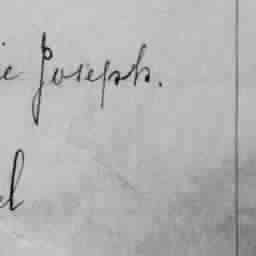 ie Joseph.
el